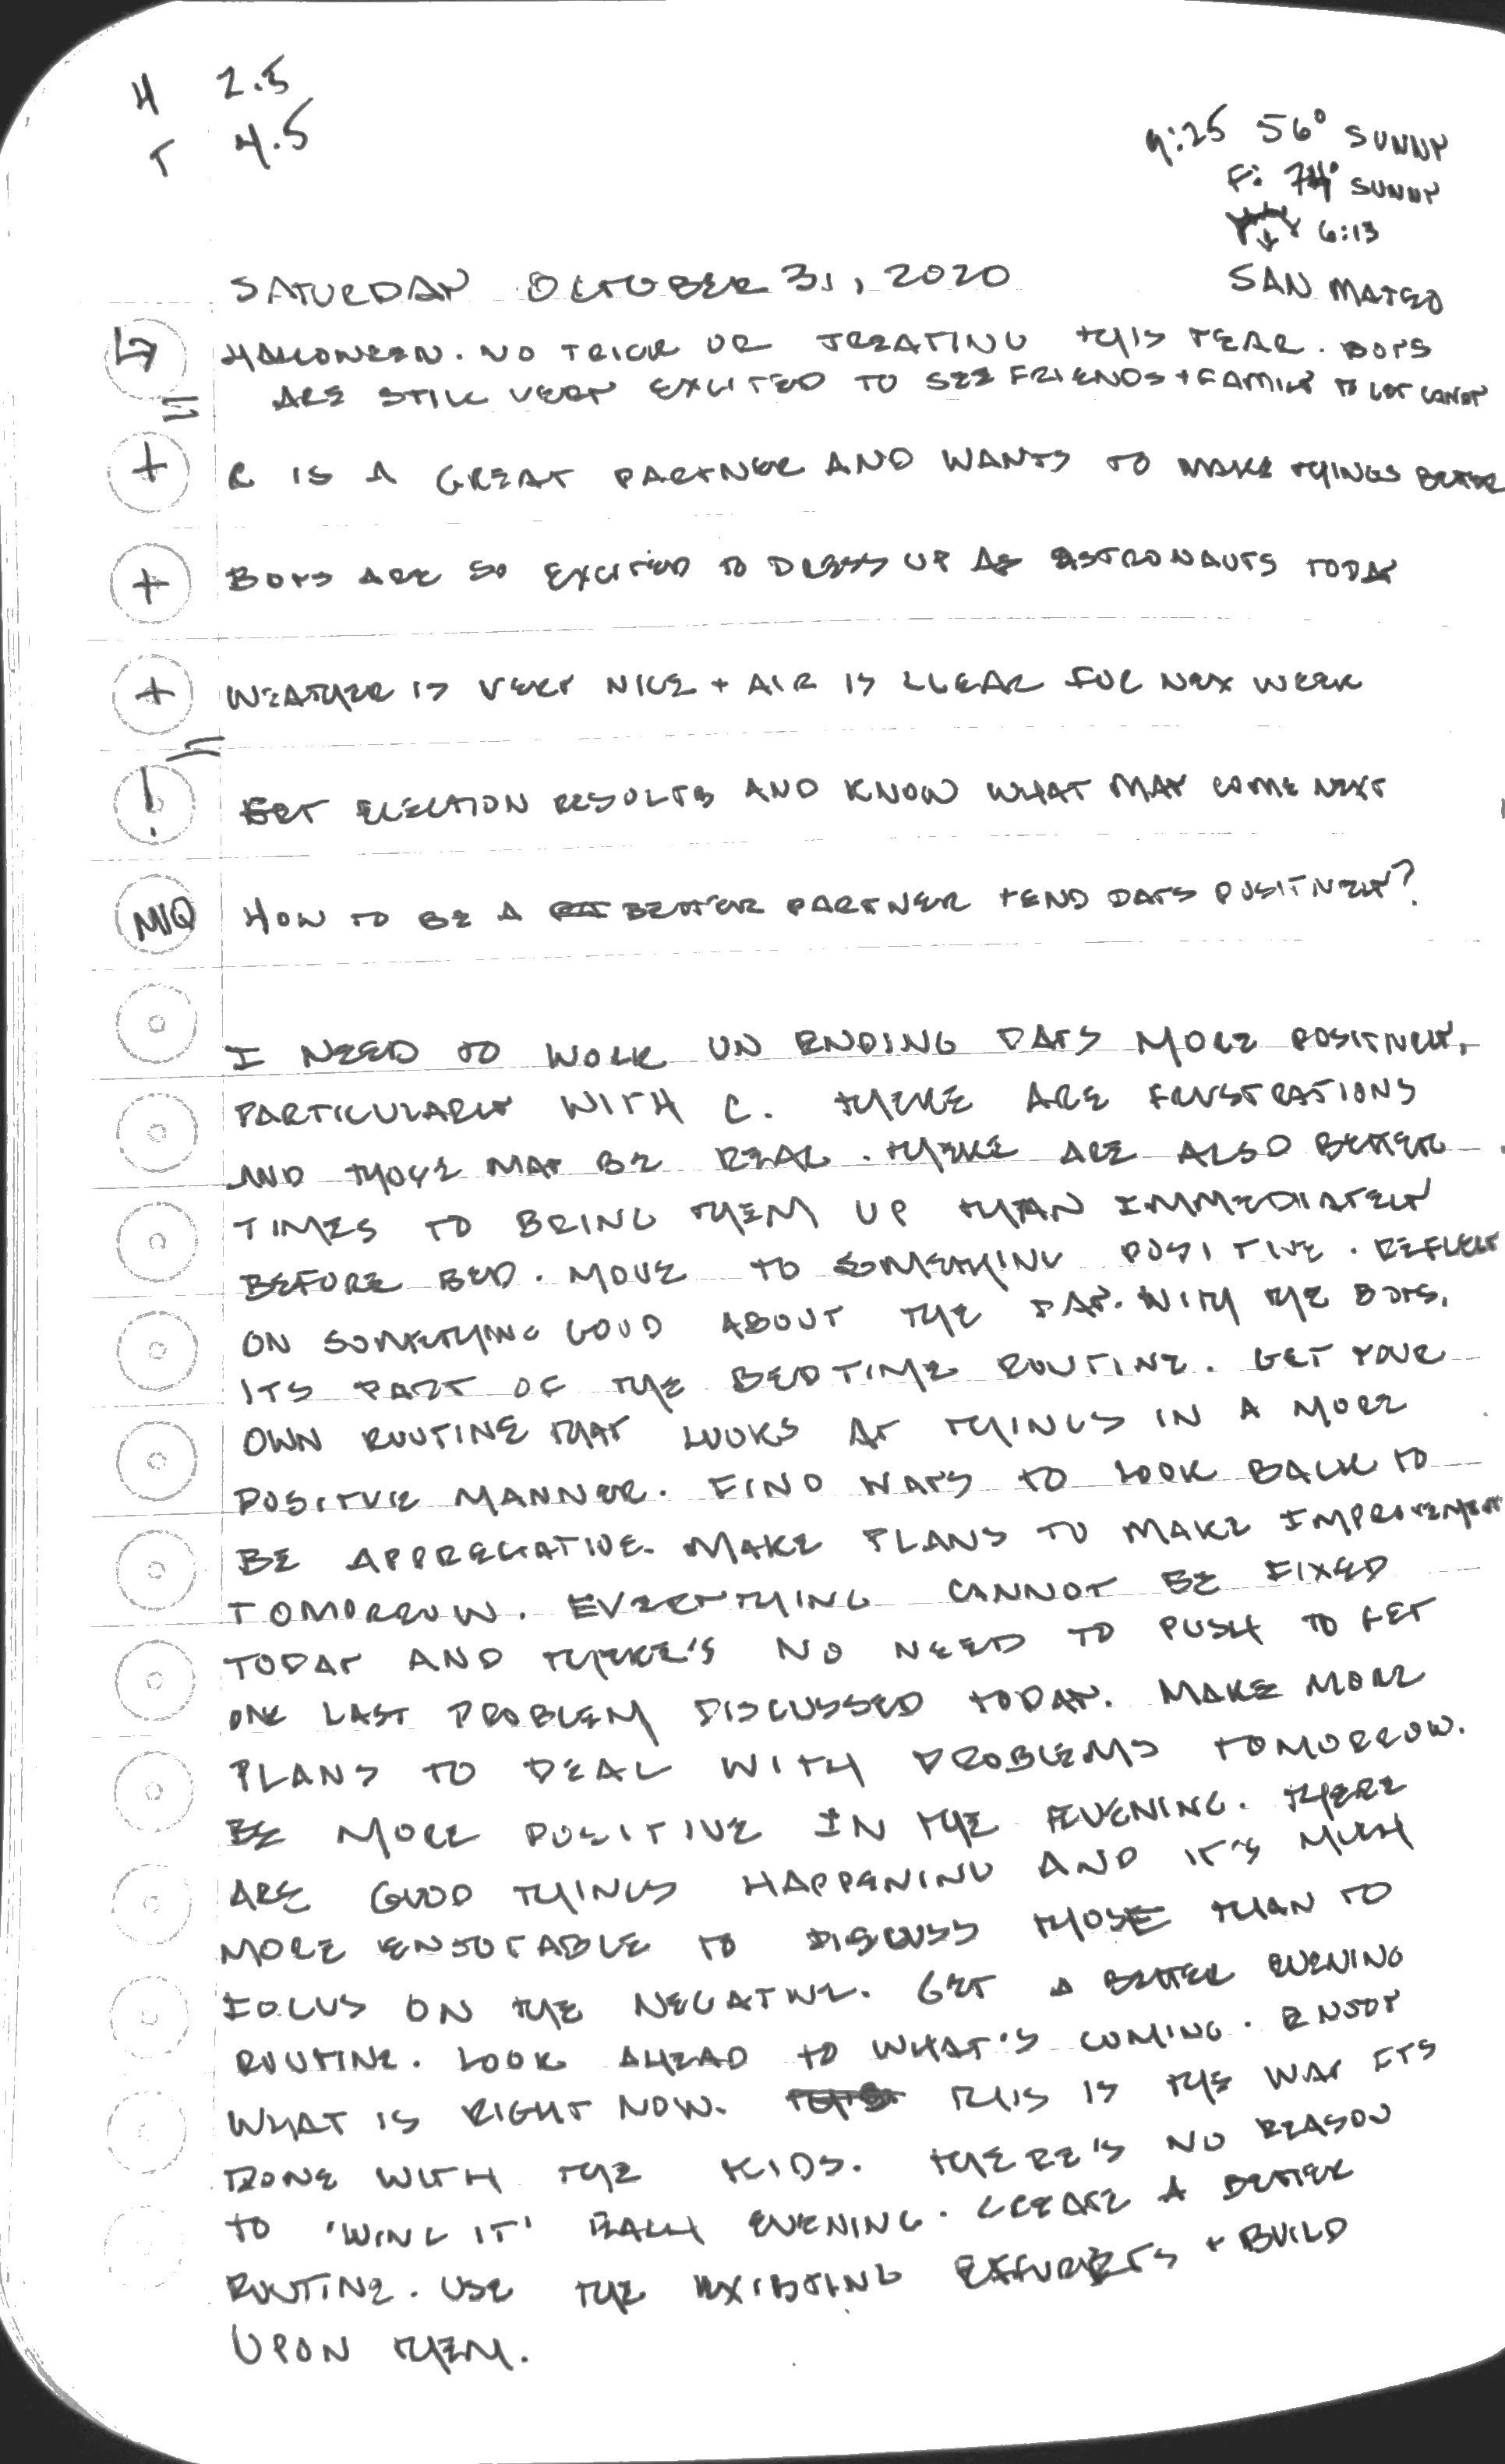 H 2.5
T 4.5
9:25 56° SUNNY
F: 74° SUNNY
↓ 6:13
SAN MATEO
SATURDAY OCTOBER 31, 2020
HALLOWEEN. NO TRICK OR TREATING THIS YEAR. BOYS
ARE STILL VERY EXCITED TO SEE FRIENDS + FAMILY TO GET CANDY
+ R IS A GREAT PARTNER AND WANTS TO MAKE THINGS BETTER
+ BOYS ARE SO EXCITED TO DRESS UP AS ASTRONAUTS TODAY
+ WEATHER IS VERY NICE + AIR IS CLEAR FOR NEX WEEK
! GET ELECTION RESULTS AND KNOW WHAT MAY COME NEXT
MIQ HOW TO BE A BETTER PARTNER + END DAYS POSITIVELY?
I NEED TO WORK ON ENDING DAYS MORE POSITIVELY,
PARTICULARLY WITH C. THERE ARE FRUSTRATIONS
AND THOSE MAY BE REAL. THERE ARE ALSO BETTER
TIMES TO BRING THEM UP THAN IMMEDIATELY
BEFORE BED. MOVE TO SOMETHING POSITIVE. REFLECT
ON SOMETHING GOOD ABOUT THE DAY. WITH THE BOYS,
ITS PART OF THE BEDTIME ROUTINE. GET YOUR
OWN ROUTINE THAT LOOKS AT THINGS IN A MORE
POSITVE MANNER. FIND WAYS TO LOOK BACK TO
BE APPRECIATIVE. MAKE PLANS TO MAKE IMPROVEMENTS
TOMORROW. EVERYTHING CANNOT BE FIXED
TODAY AND THERE'S NO NEED TO PUSH TO GET
ONE LAST PROBLEM DISCUSSED TODAY. MAKE MORE
PLANS TO DEAL WITH PROBLEMS TOMORROW.
BE MORE POSITIVE IN THE EVENING. THERE
ARE GOOD THINGS HAPPENING AND IT'S MUCH
MORE ENJOYABLE TO DISCUSS THOSE THAN TO
FOCUS ON THE NEGATIVE. GET A BETTER EVENING
ROUTINE. LOOK AHEAD TO WHAT'S COMING. ENJOY
WHAT IS RIGHT NOW. THIS IS THE WAY ITS
DONE WITH THE KIDS. THERE'S NO REASON
TO 'WING IT' EACH EVENING. CREATE A BETTER
ROUTINE. USE THE EXISTING EFFORTS + BUILD
UPON THEM.